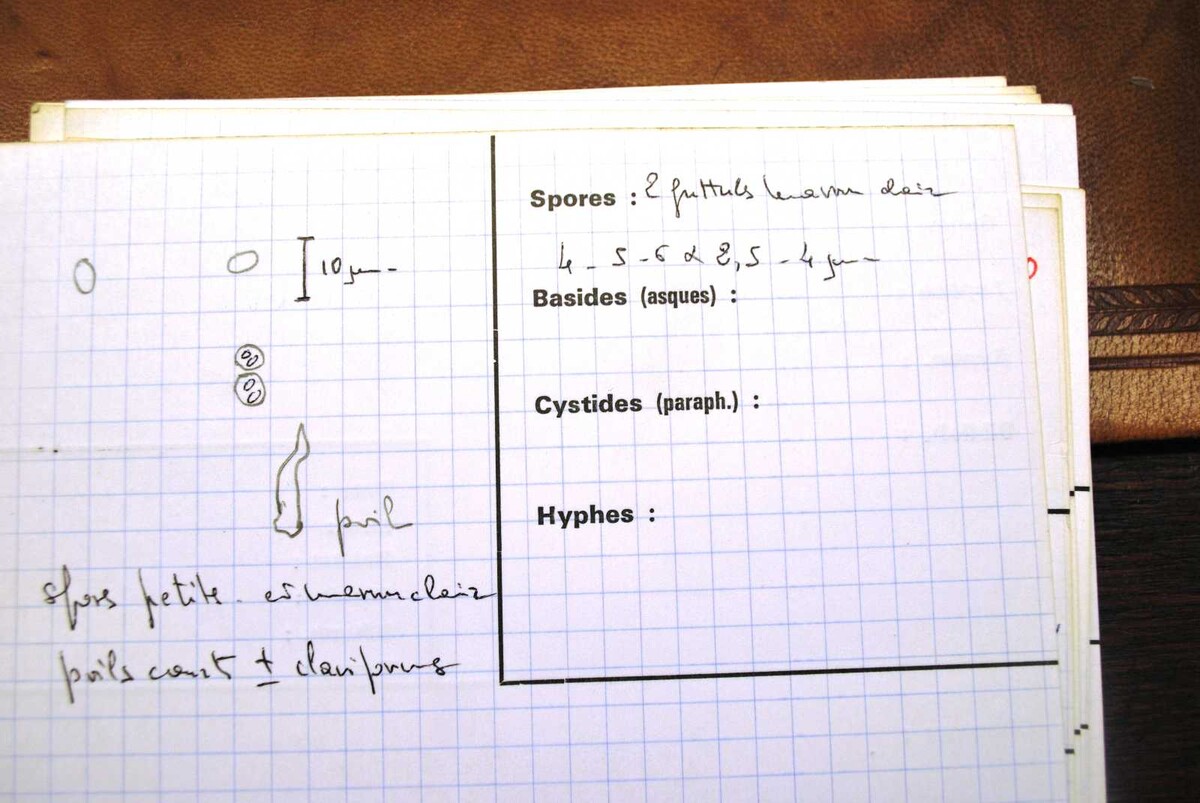 10 µm
poil
spores petites et marron clair
poils court ± claviformes
Spores : 2 guttules marron clair
4 - 5 - 6 x 2,5 - 4 µm
Basides (asques) :
Cystides (paraph.) :
Hyphes :